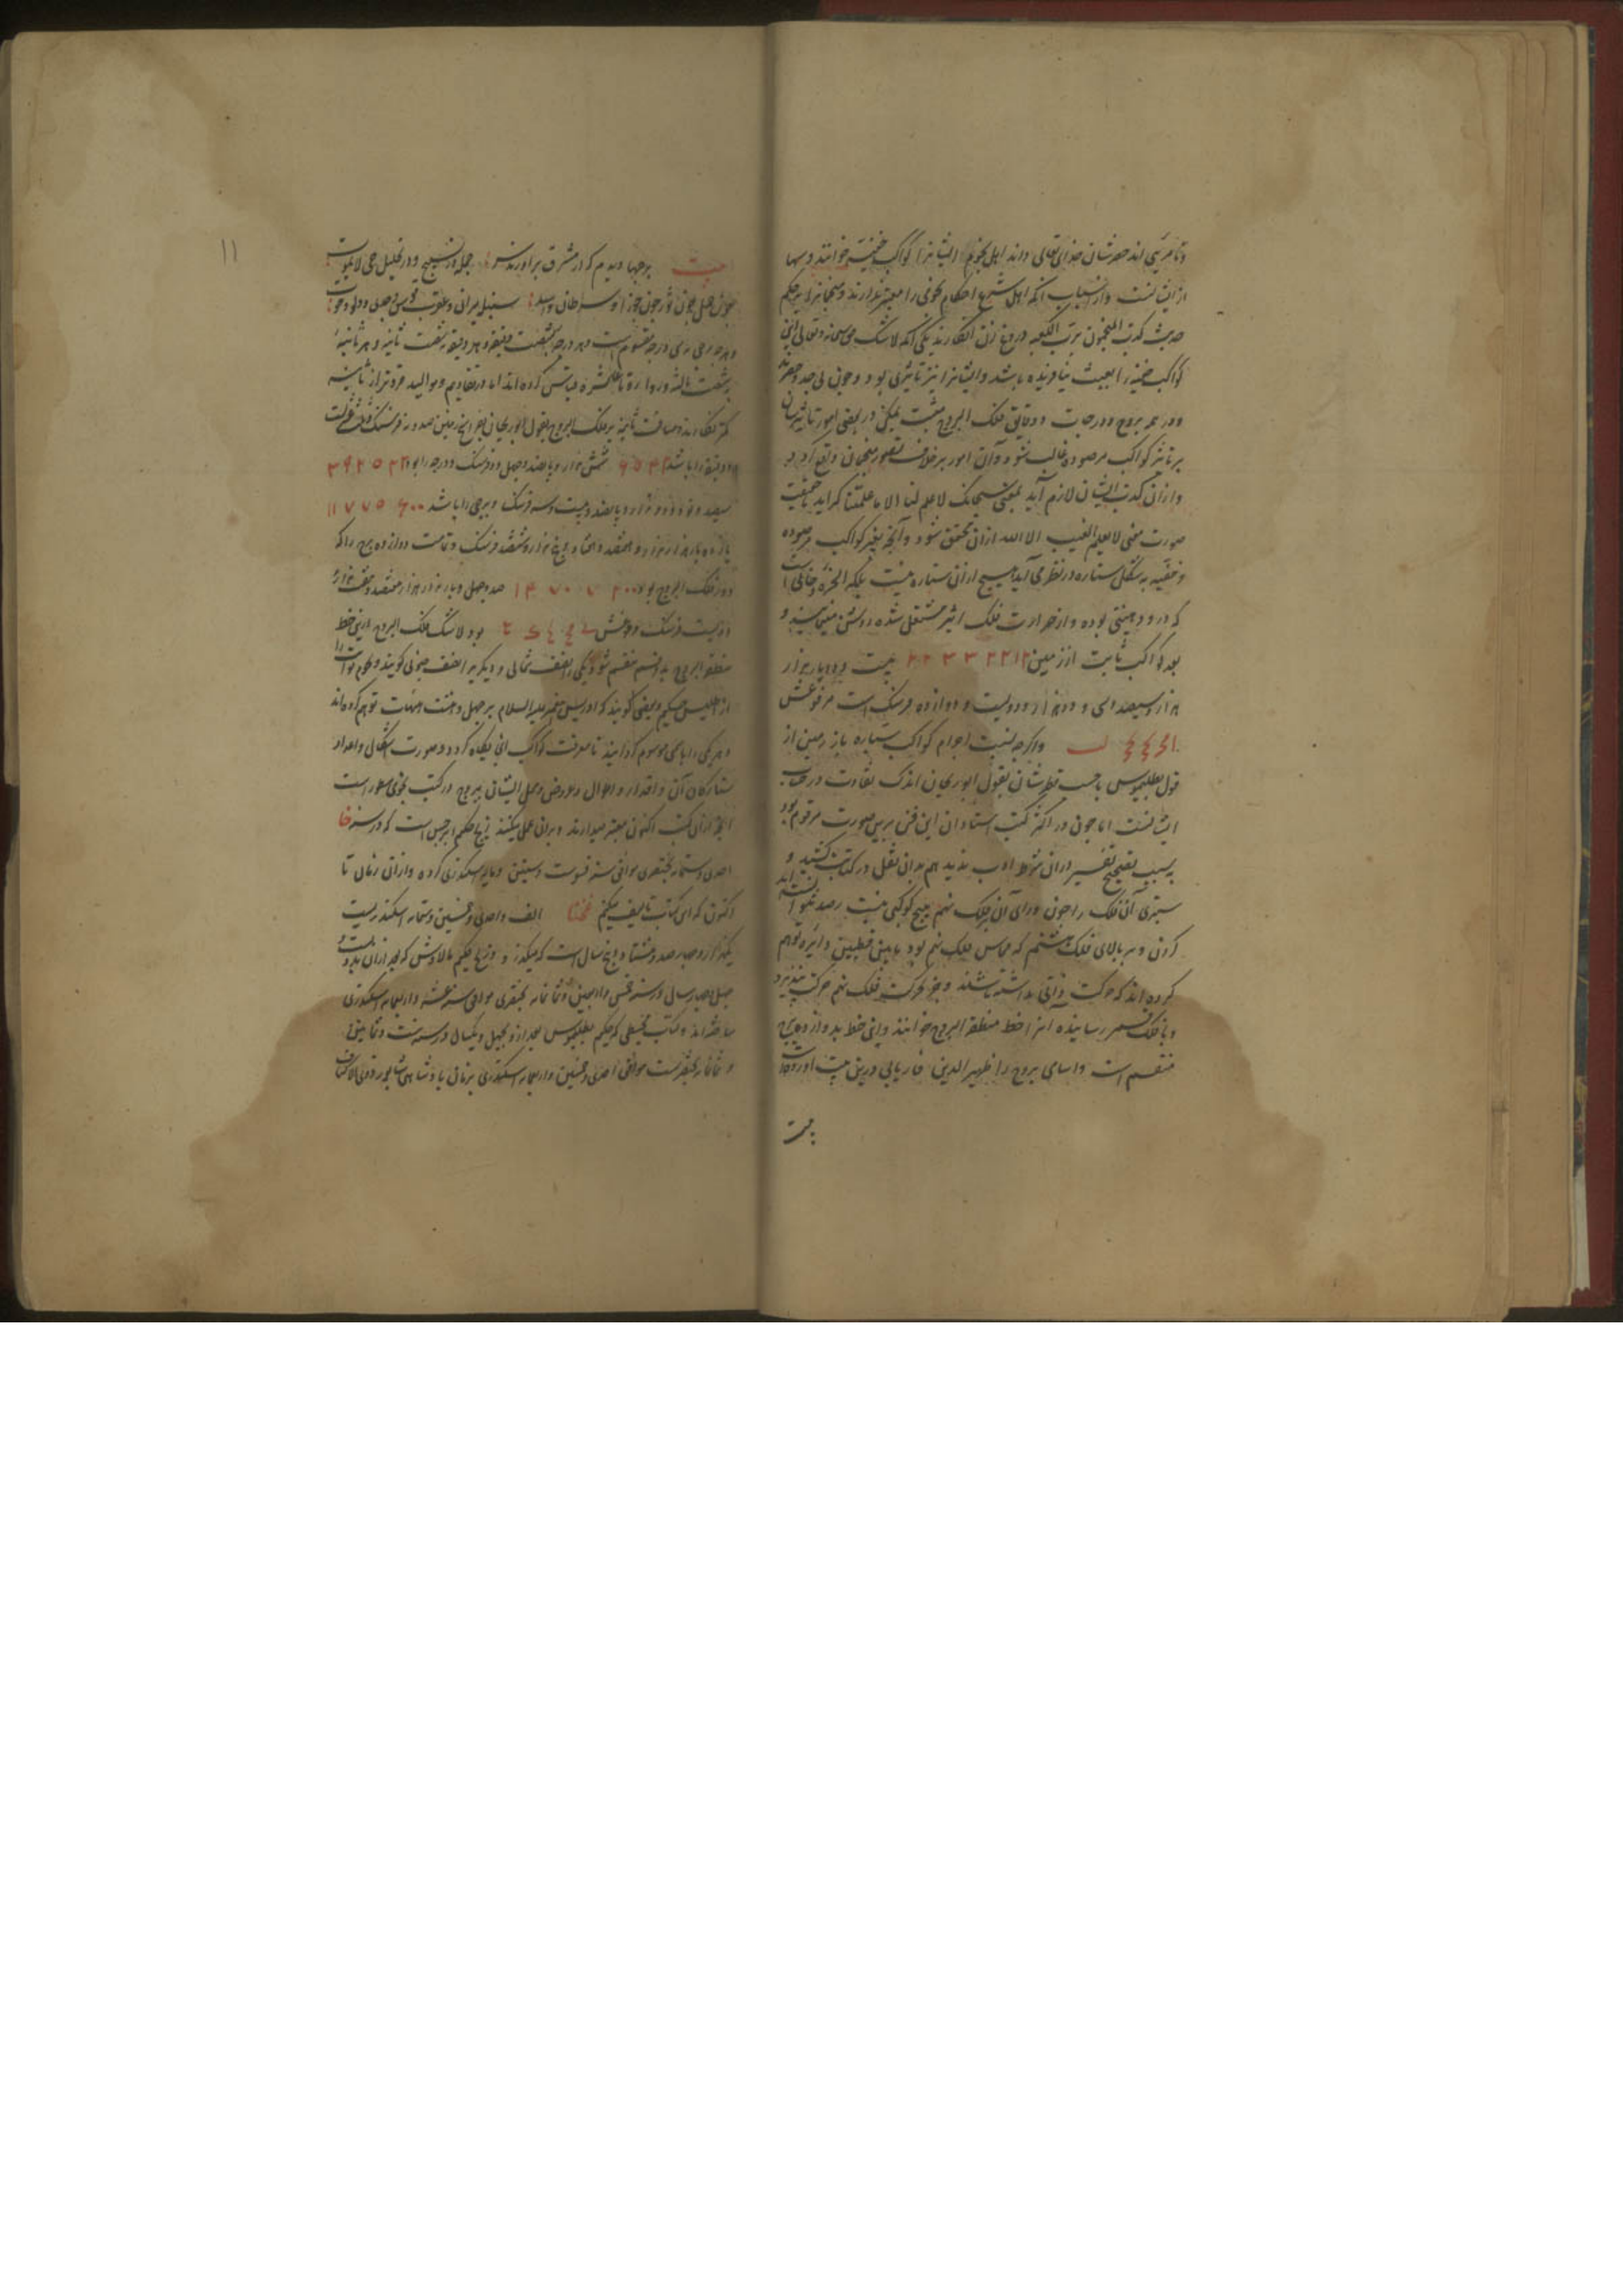 و نامرئی اند حصرشان خدای تعالی داند اهل نجوم ایشانرا کواکب خفیه خوانند و سها
از ایشانست و از اسباب آنکه اهل شرع احکام نجومی را معتبر ندارند و منجمانرا بر حکم
حدیث کذب المنجمون برب الکعبه دروغ زن انگارند یکی آنکه لاشک حق سبحانه و تعالی این
کواکب خفیه را بعبث نیافریده باشد و ایشانرا نیز تاثیری بود و چون بی حد و حصرند
و در همه بروج و درجات و دقایق فلک البروج مثبت یمکن در بعضی امور تاثیرشان
بر تاثیر کواکب مرصوده غالب شود و آن امور بر خلاف تصور منجمان واقع گردد
و از آن کذب ایشان لازم آید بمعنی سبحانک لا علم لنا الا ما علمتنا گراید حقیقت
صورت معنی لا یعلم الغیب الا الله از آن محقق شود و آنچه بغیر کواکب مرصوده
و خفیه به شکل ستاره در نظر می آید هیچ از آن ستاره نیست بلکه ابخره دخانی است
که درو دهنیتی بوده و از حرارت فلک اثیر مشتعل شده روشن می نماید و
بعد کواکب ثابت از زمین ۳۳۳۳۲۲۱۲ بیست و دو بار هزار
هزار و سیصد و سی و دو هزار و دویست و دوازده فرسنگ است مرفوعش
و اگرچه نسبت اجرام کواکب سیاره باز زمین از
قول بطلمیوس با حسب قطرشان بقول ابوریحان اندک تفاوت در حساب
ایشانست اما چون در اکثر کتب استادان این فن برین صورت مرقوم بود
به سبب تصحیح تغییر در آن شرط ادب ندید هم بدان نقل در کتابت کشید و
سبتری آن فلک را چون ورای آن بر فلک نهم هیچ کوکبی نیست رصد نتوانسته اند
کردن و بر بالای فلک هشتم که مماس فلک نهم بود مابین قطبین دایره توهم
کرده اند که حرکت ذاتی نداشته باشد و بجز بحرکت فلک نهم حرکت نپذیرد
و با فلک شمس رسانیده آنرا خط منطقة البروج خوانند و این خط به دوازده برج
منقسم است و اسامی بروج را ظهیرالدین فاریابی درین بیت آورده است
بیت
۱۱
بیت برجها دیدم که از مشرق برآوردند سر جمله در تسبیح و در تهلیل حی لایموت
چون حمل چون ثور چون جوزا و سرطان و اسد سنبله میزان و عقرب قوس و جدی و دلو و حوت
و هر برجی به سی درجه مقسوم است و هر درجه به شصت دقیقه و هر دقیقه به شصت ثانیه و هر ثانیه
به شصت ثالثه و روا بود تا عاشره قیاس کرده اند اما در تقاویم و موالید فروتر از ثانیه
کمتر نگارند و مسافت ثانیه بر فلک البروج بقول ابوریحان بفراسخ زمین صد و نه فرسنگ و ثلث فرسنگ است
و دقیقه را باشد ۶۵۴۲ شش هزار و پانصد و چهل و دو فرسنگ و درجه را بود ۳۹۲۵۲۳
سیصد و نود و دو هزار و پانصد و بیست و سه فرسنگ و برجی را باشد ۱۱۷۷۵۶۰۰
یازده بار هزار هزار و هفتصد و هفتاد و پنج هزار و ششصد فرسنگ و تمامت دوازده برج را که
دور فلک البروج بود ۱۴۰۷۰۷۲۰۰ صد و چهل و یکبار هزار هزار و هفتصد و هفت هزار و
دویست فرسنگ مرفوعش بود لاشک فلک البروج ازین خط
منطقة البروج به دو قسم منقسم شود یکی را نصف شمالی و دیگری را نصف جنوبی گویند و نجوم ثوابت را
حکیم و بعضی گویند که ادریس پیغمبر علیه السلام بر چهل و هشت هیات توهم کرده اند
و هر یکی را باسمی موسوم گردانیده تا معرفت کواکب آن یگانه گردد و صورت اشکال و اعداد
ستارگان آن و اقدار و احوال و عروض و محل ایشان ببروج در کتب نجومی مسطور است
آنچه از آن کتب اکنون معتبر میدارند و بر آن عمل میکنند زیج حکیم ابرخس است که در سنه
احدی و ستمائه بختنصری موافق سنه اسکندری کرده و از آن زمان تا
اکنون که این کتاب تالیف میکنم الف و احدی و خمسین و ستمائه اسکندریست
یکهزار و چهارصد و هشتاد و پنج سال است که میگذرد و زیج حکیم مالاوش که بعد از آن به دویست و
چهل و چهار سال در سنه خمس و اربعین و ثمانمائه بختنصری موافق سنه عشر و اربعمائه اسکندری
ساخته اند و کتاب مجسطی که حکیم بطلمیوس بعد ازو بچهل و یکسال در سنه ست و ثمانین
و ثمانمائه بختنصریست موافق احدی و خمسین و اربعمائه اسکندری بزمان پادشاهی شاپور ذوالاکتاف